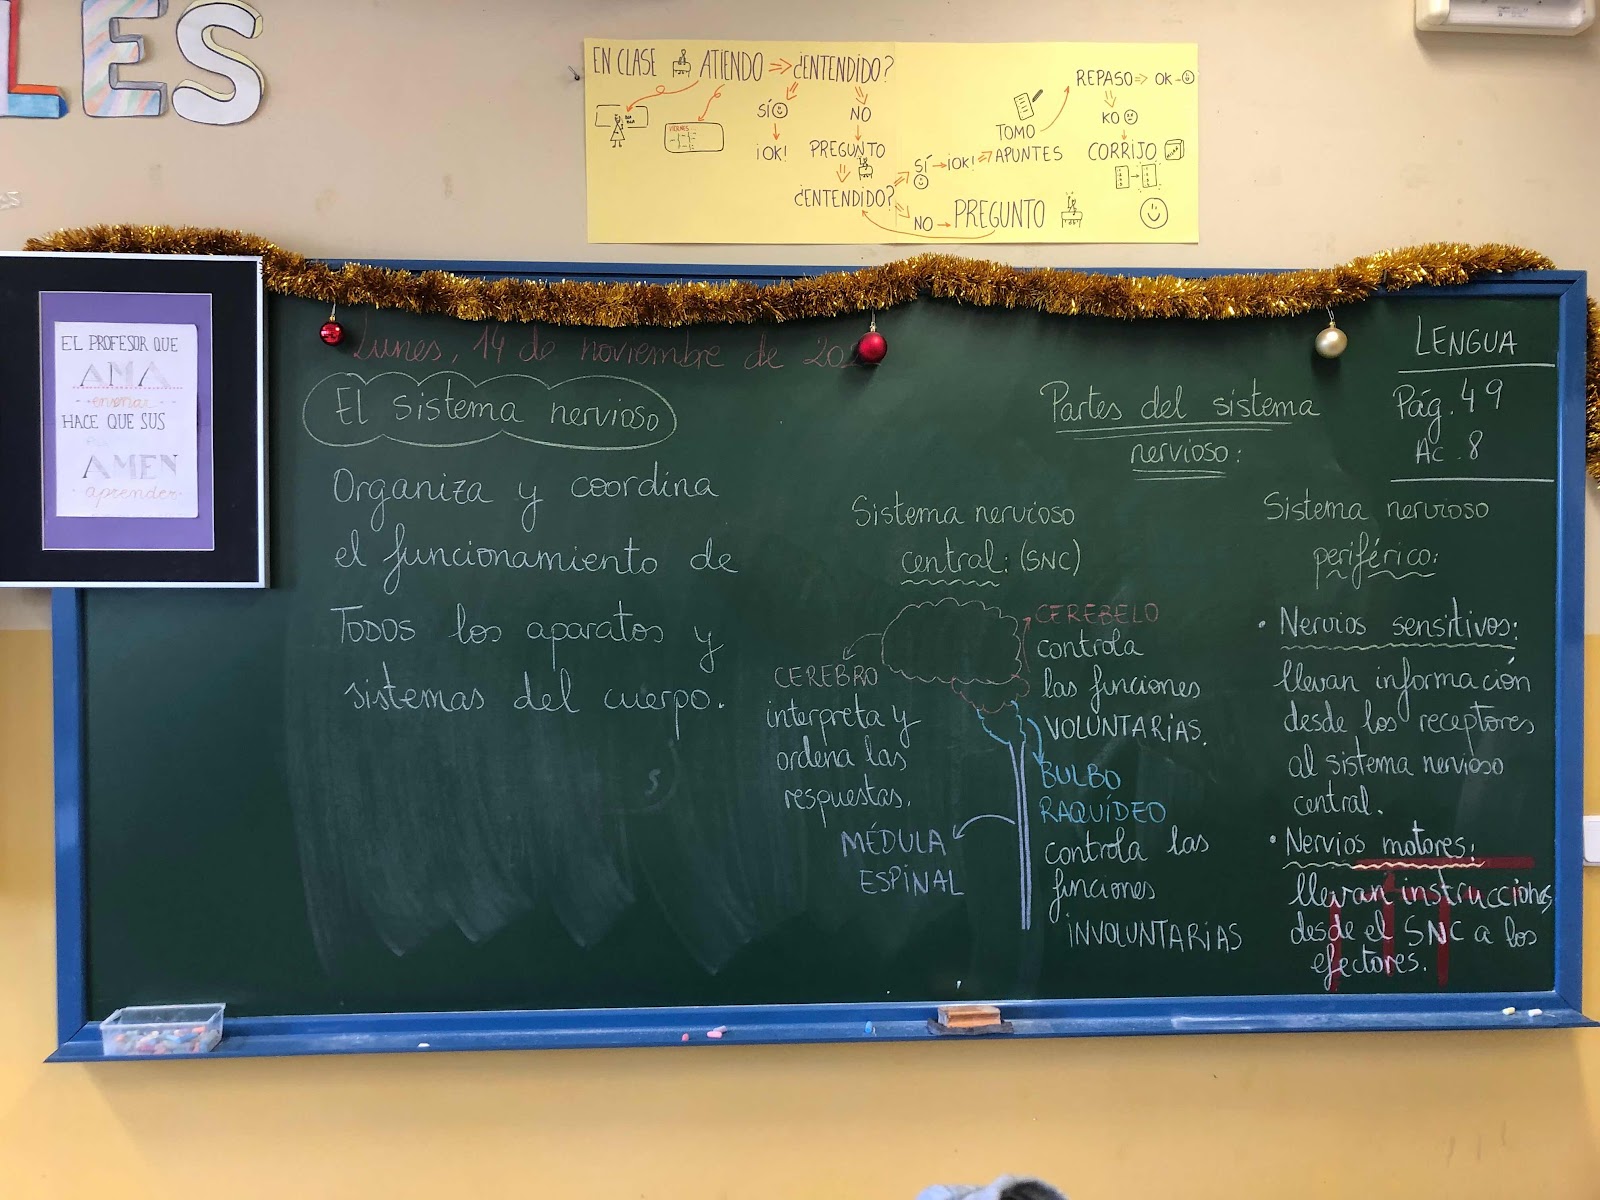 LES
EN CLASE ATIENDO ⇒ ¿ENTENDIDO?
SÍ
NO
¡OK!
PREGUNTO
¿ENTENDIDO?
SÍ → ¡OK! ⇒
NO → PREGUNTO
TOMO
APUNTES
REPASO ⇒ OK
KO
CORRIJO
EL PROFESOR QUE
AMA
enseñar
HACE QUE SUS
AMEN
aprender
Lunes, 14 de noviembre de
El sistema nervioso
Organiza y coordina
el funcionamiento de
TODOS los aparatos y
sistemas del cuerpo.
Partes del sistema
nervioso:
Sistema nervioso
central: (SNC)
CEREBRO
interpreta y
ordena las
respuestas.
CEREBELO
controla
las funciones
VOLUNTARIAS.
BULBO
RAQUÍDEO
controla las
funciones
INVOLUNTARIAS
MÉDULA
ESPINAL
LENGUA
Pág. 49
Ac. 8
Sistema nervioso
periférico:
• Nervios sensitivos:
llevan información
desde los receptores
al sistema nervioso
central.
• Nervios motores:
llevan instrucciones
desde el SNC a los
efectores.